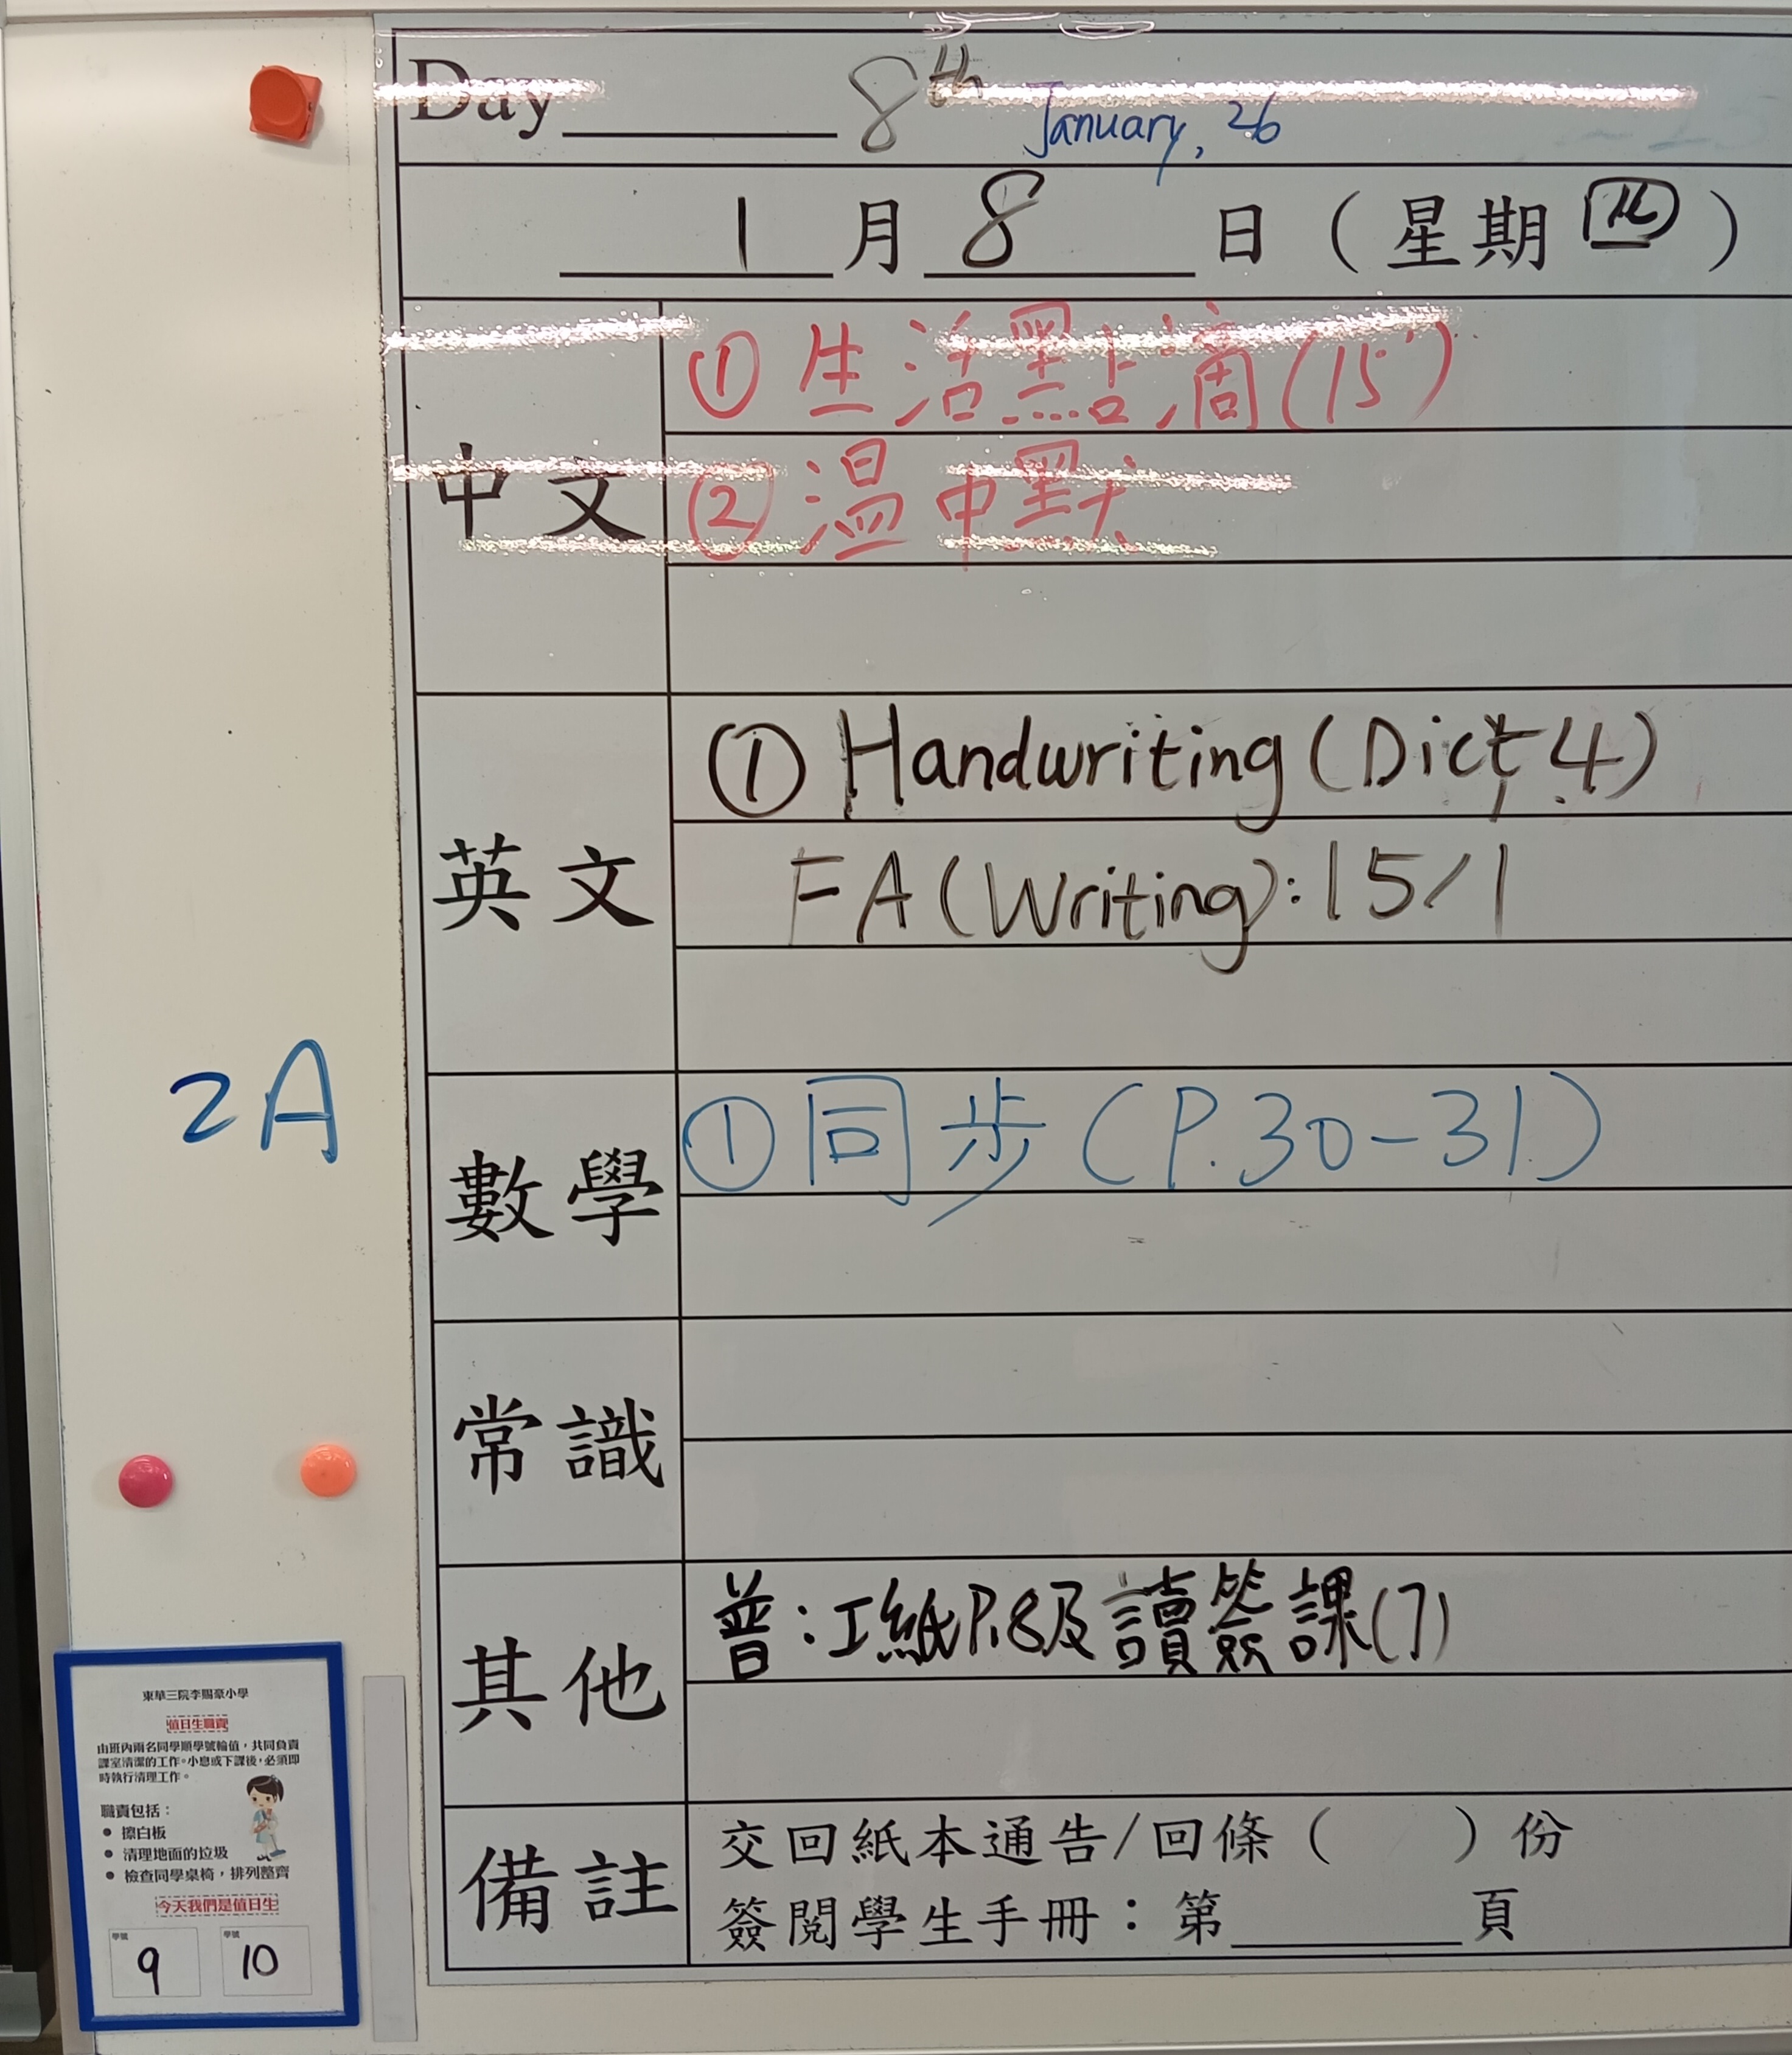 Day 8th January, 26
1 月 8 日 ( 星期 四 )
中文
① 生活點滴 (15)
② 溫中默
英文
① Handwriting (Dict. 4)
FA (Writing): 15/1
2A
數學
① 同步 (P.30-31)
常識
其他
普:工紙P.8及讀簽課(7)
備註
交回紙本通告/回條 ( ) 份
簽閱學生手冊:第 頁
東華三院李賜豪小學
值日生職責
由班內兩名同學順學號輪值,共同負責
課室清潔的工作。小息或下課後,必須即
時執行清理工作。
職責包括:
• 擦白板
• 清理地面的垃圾
• 檢查同學桌椅,排列整齊
今天我們是值日生
學號 學號
9 10